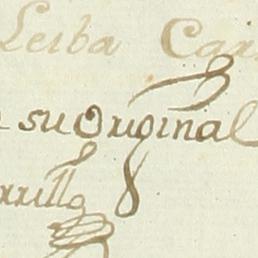 Leiba Car
su Original
rrillo